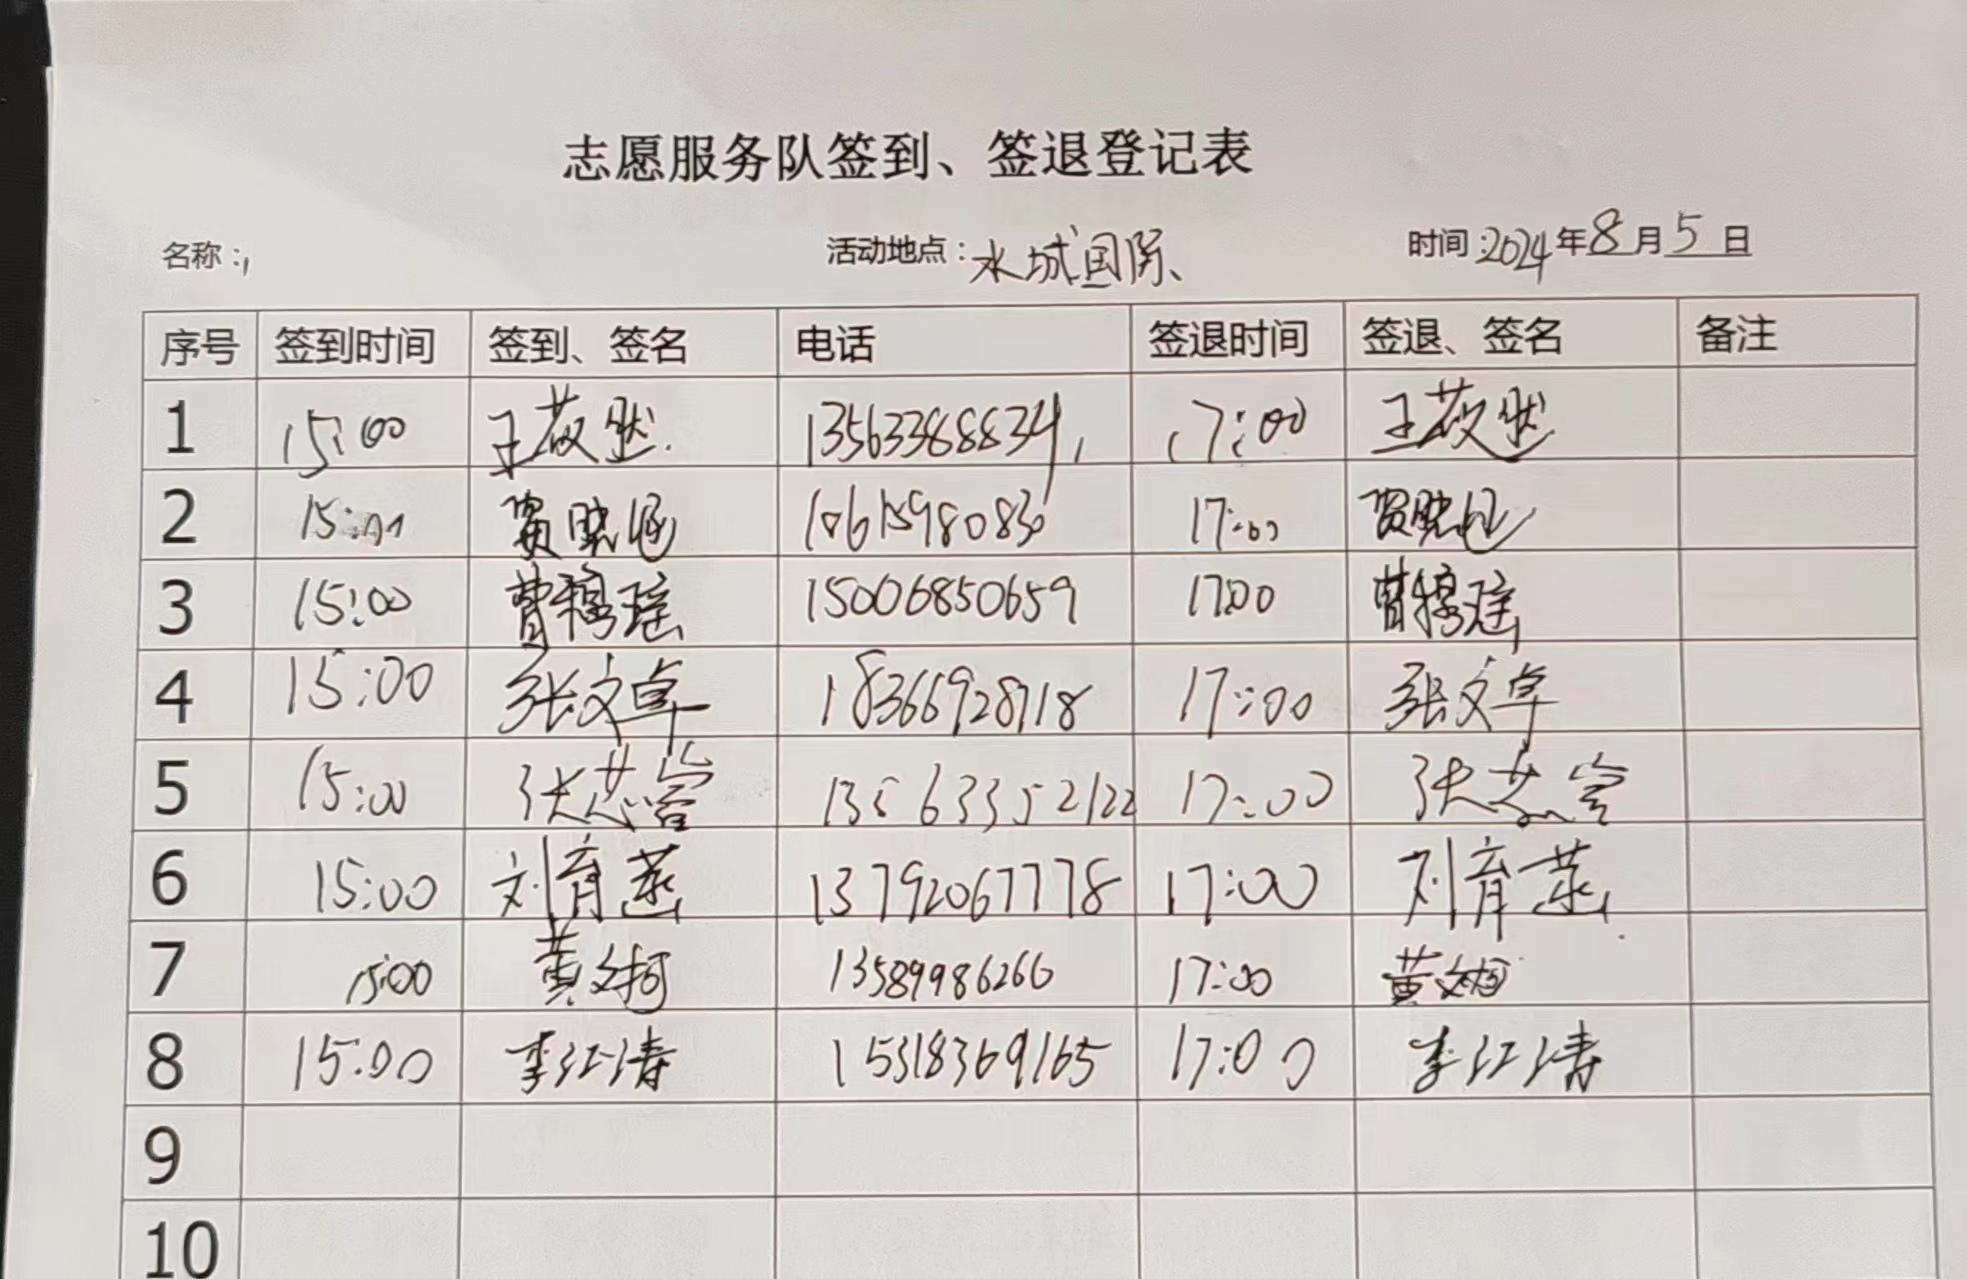 志愿服务队签到、签退登记表
名称： 活动地点：水城国际 时间：2024年8月5日
序号 签到时间 签到、签名 电话 签退时间 签退、签名 备注
1 15:00 王荍然 13563388834 17:00 王荍然
2 15:00 17:00
3 15:00 曹穆瑶 15006850659 17:00 曹穆瑶
4 15:00 张文卓 18366928718 17:00 张文卓
5 15:00 张 13563352122 17:00 张
6 15:00 刘育燕 13792067778 17:00 刘育燕
7 15:00 黄文珂 13589986266 17:00 黄文珂
8 15:00 李江涛 15318369165 17:00 李江涛
9
10